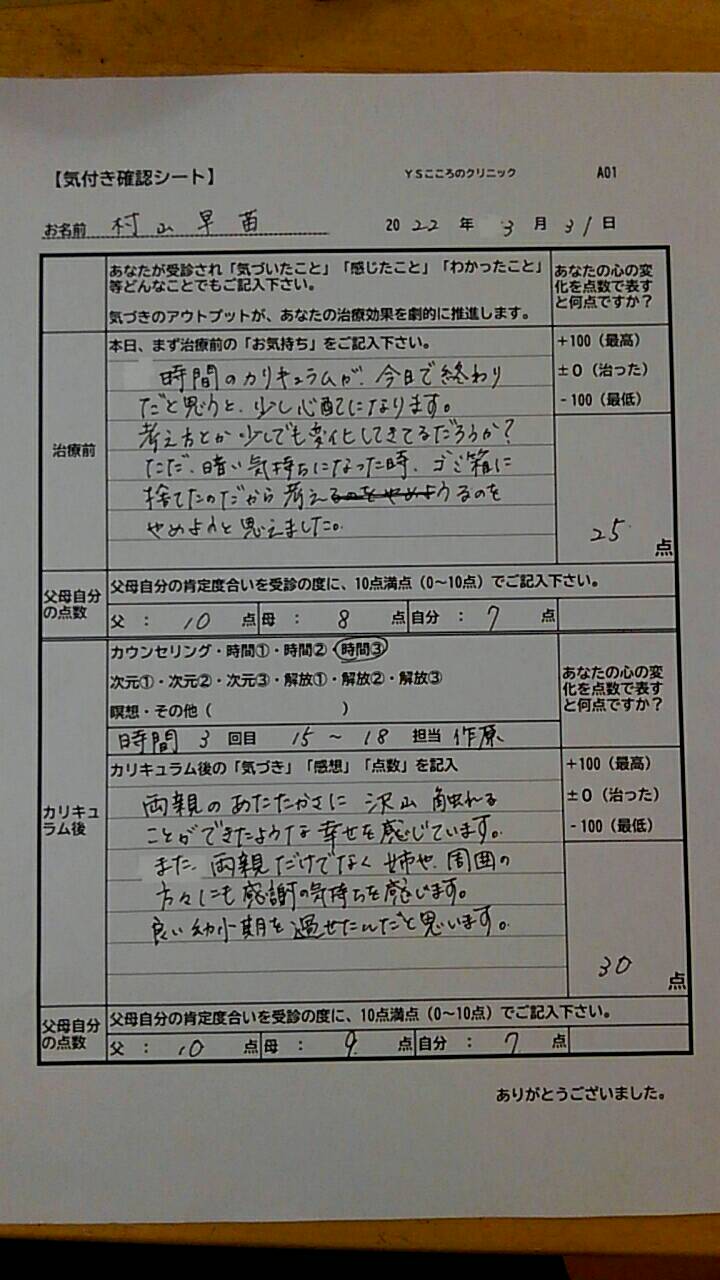 【気付き確認シート】 YSこころのクリニック A01
お名前 村山早苗 2022年 3月31日
あなたが受診され「気づいたこと」「感じたこと」「わかったこと」
等どんなことでもご記入下さい。
気づきのアウトプットが、あなたの治療効果を劇的に推進します。
あなたの心の変
化を点数で表す
と何点ですか?
治療前
本日、まず治療前の「お気持ち」をご記入下さい。
時間のカリキュラムが、今日で終わり
だと思うと、少し心配になります。
考え方とか少しでも変化してきてるだろうか?
ただ、暗い気持ちになった時、ゴミ箱に
捨てたのだから考えるのをやめようるのを
やめようと思えました。
+100(最高)
±0(治った)
-100(最低)
25点
父母自分
の点数
父母自分の肯定度合いを受診の度に、10点満点(0~10点)でご記入下さい。
父:10点 母:8点 自分:7点
カリキュ
ラム後
カウンセリング・時間①・時間②・時間③
次元①・次元②・次元③・解放①・解放②・解放③
瞑想・その他( )
時間 3回目 15~18 担当 作原
あなたの心の変
化を点数で表す
と何点ですか?
カリキュラム後の「気づき」「感想」「点数」を記入
両親のあたたかさに沢山触れる
ことができたような幸せを感じています。
また、両親だけでなく姉や、周囲の
方々にも感謝の気持ちを感じます。
良い幼少期を過せたんだと思います。
+100(最高)
±0(治った)
-100(最低)
30点
父母自分
の点数
父母自分の肯定度合いを受診の度に、10点満点(0~10点)でご記入下さい。
父:10点 母:9点 自分:7点
ありがとうございました。